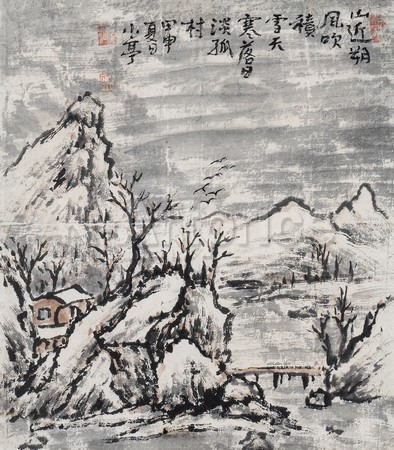 山近朔
風吹
積
雪天
寒落日
淡孤
村
甲申
夏日
小亭